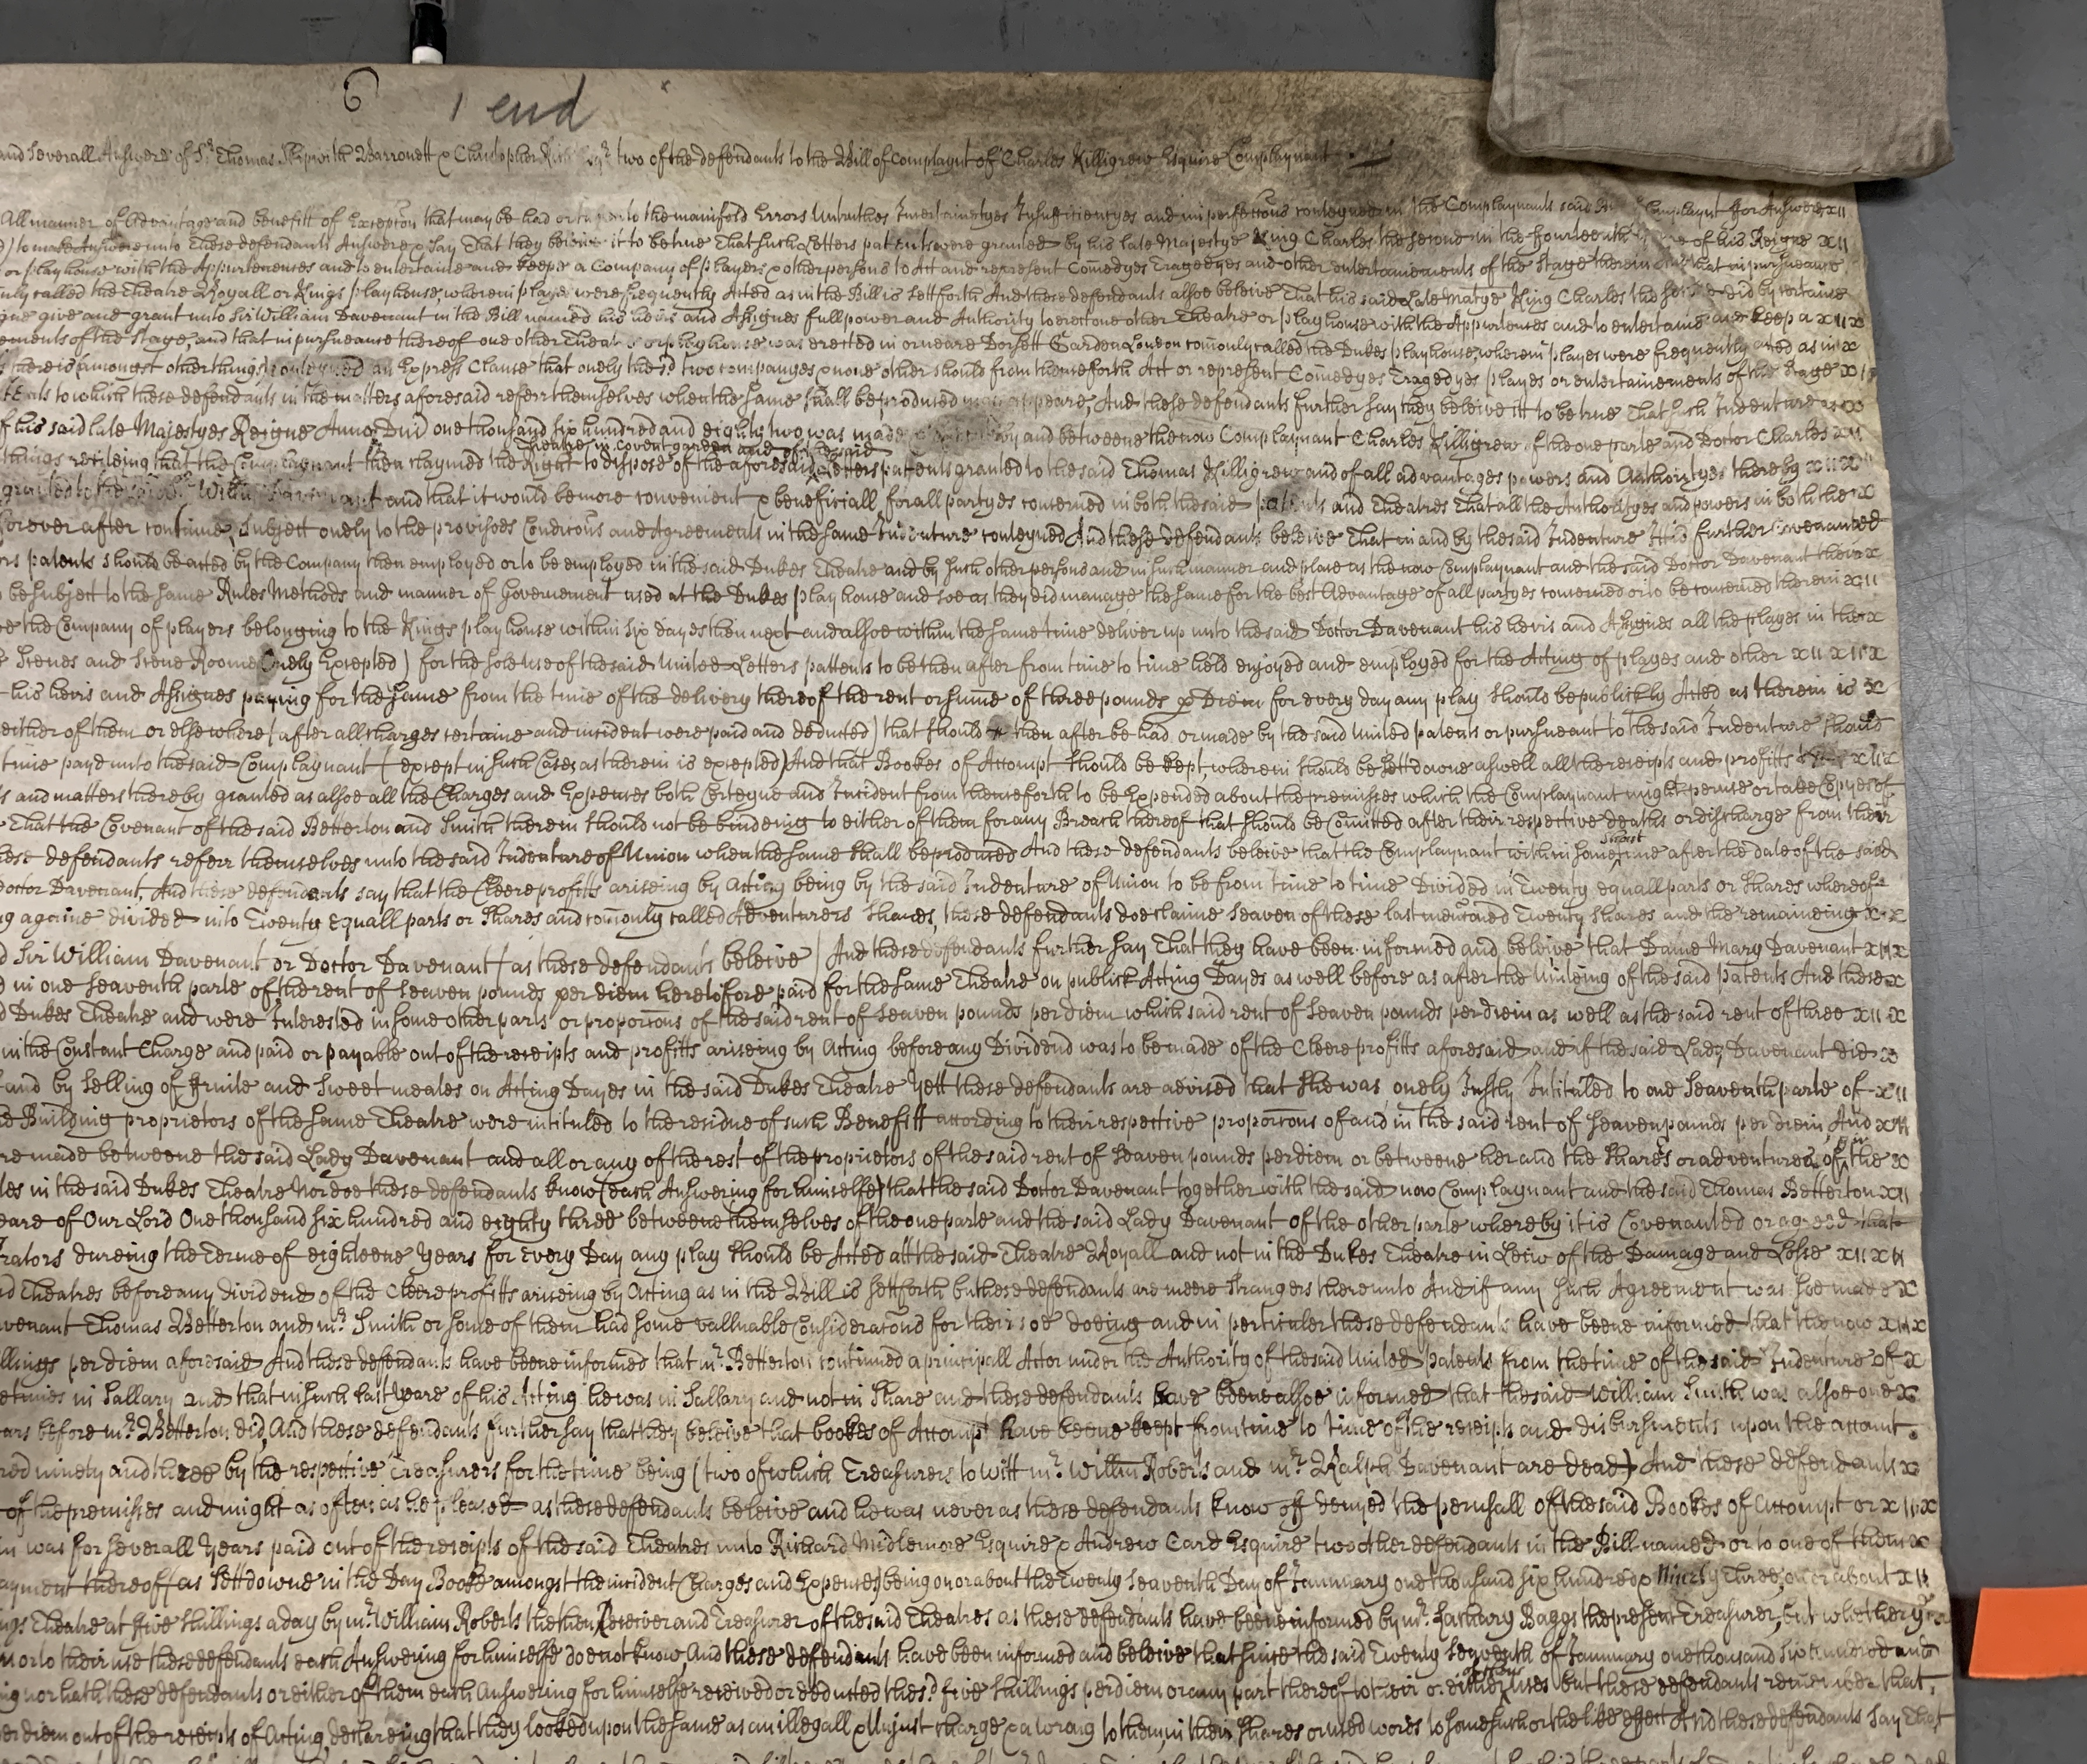 6 1 end
and severall Answers of Sr Thomas Skipwith Barronett & Christopher two of the defendants to the Bill of Complaynt of Charles Killigrew Esquire Complaynant
All manner of Advantage and benefitt of Excepcon that may be had or to the manifold Errors Untruthes Incertaintyes Insufficiencyes and imperfeccons conteyned in the Complaynants said Complaynt for Answere xii
to make Answere unto These defendants Answere & say That they beleive it to be true That such Letters patents were granted by his late Majestye King Charles the second in the fourteenth of his Reigne xii
or playhouse with the Appurtenances and to entertaine and keepe a Company of players & other persons to Act and represent Comedyes Tragedyes and other entertainements of the Stage therein that in pursueance
called the Theatre Royall or Kings playhouse, wherein playes were frequently Acted as in the Bill is sett forth And these defendants alsoe beleive That his said Late Matye King Charles the did by certaine
give and grant unto Sir William Davenant in the Bill named his heirs and Assignes full power and Authority to erect one other Theatre or playhouse with the Appurtences and to entertaine and keep a x ii x
ements of the Stage, and that in pursueance thereof one other Theatre or playhouse was erected in or neare Dorsett Garden London comonly called the Dukes playhouse, wherein playes were frequently acted as in x
there is (amongst other things) conteyned an Express Clause that onely the sd two companyes & none other should from thenceforth Act or represent Comedyes Tragedyes playes or entertainements of the Stage x
to which these defendants in the matters aforesaid referr themselves when the same shall be produced appeare, And these defendants further say they beleive itt to be true That such Indenture
of his said late Majestyes Reigne Anno Dni one thousand six hundred and eighty two was made by and betweene the now Complaynant Charles Killigrew of the one parte and Doctor Charles xii
Theatre in covent garden and of the said
things reciteing that the Complaynant then claymed the Right to dispose of the aforesaid Letters patents granted to the said Thomas Killigrew and of all advantages powers and Authorityes thereby x ii x
granted to the and that it would be more convenient & beneficiall for all partyes concerned in both the said patents and Theatres That all the Authorityes and powers in both the x
forever after continue, subject onely to the provisoes Condicons and Agreements in the same Indenture conteyned And these defendants beleive That in and by the said Indenture Itt is further covenanted
patents should be acted by the Company then employed or to be employed in the said Dukes Theatre and by such other persons and in such manner and place as the now Complaynant and the said Doctor Davenant their x
be subject to the same Rules Methods and manner of Governement used at the Dukes playhouse and soe as they did manage the same for the best Advantage of all partyes concerned or to be concerned therein xii
the Company of players belonging to the Kings playhouse within six dayes then next and alsoe within the same time deliver up unto the said Doctor Davenant his heirs and Assignes all the playes in the x
Scenes and Scene Roome onely Excepted) for the sole use of the said United Letters pattents to be then after from time to time held enjoyed and employed for the Acting of playes and other x ii x ii x
his heirs and Assignes paying for the same from the time of the delivery thereof the rent or summe of three pounds p Diem for every day any play should be publickly Acted as therein is x
either of them or elsewhere (after all charges certaine and incident were paid and deducted) that should then after be had or made by the said United patents or pursueant to the said Indenture should
time payd unto the said Complaynant (except in such Cases as therein is excepted) And that Bookes of Accompt should be kept wherein should be settdowne aswell all the receipts and profitts
and matters thereby granted as alsoe all the Charges and Expences both Certeyne and Incident from thenceforth to be Expended about the premisses which the Complaynant might peruse or take Copyes of
That the Covenant of the said Betterton and Smith therein should not be bindeing to either of them for any Breach thereof that should be Comitted after their respective deaths or discharge from their
short
these defendants referr themselves unto the said Indenture of Union when the same shall be produced And these defendants beleive that the Complaynant within some time after the date of the said
Doctor Davenant, And these defendants say that the Cleere profitts ariseing by Acting being by the said Indenture of Union to be from time to time Divided in Twenty equall parts or shares whereof
againe divided into Twenty equall parts or Shares and comonly called Adventurers Shares, these defendants doe claime Seaven of these last mencioned Twenty shares and the remaineing x x
Sir William Davenant or Doctor Davenant (as these defendants beleive) And these defendants further say That they have been informed and beleive that Dame Mary Davenant x ii x
in one Seaventh parte of the rent of Seaven pounds per diem heretofore paid for the same Theatre on publick Acting Dayes as well before as after the Uniteing of the said patents And these x
Dukes Theatre and were Interested in some other parts or proporcons of the said rent of Seaven pounds per diem which said rent of Seaven pounds per diem as well as the said rent of three x ii x
in the Constant Charge and paid or payable out of the receipts and profitts ariseing by Acting before any Dividend was to be made of the Cleere profitts aforesaid and if the said Lady Davenant did x
and by Selling of Fruite and Sweet meates on Acting Dayes in the said Dukes Theatre Yett these defendants are advised that she was onely Justly Intituled to one Seaventh parte of x ii
Building proprietors of the same Theatre were intituled to the residue of such Benefitt according to their respective proporcons of and in the said rent of Seaven pounds per diem, And x ii
made betweene the said Lady Davenant and all or any of the rest of the proprietors of the said rent of Seaven pounds per diem or betweene her and the Sharers or adventurers of the x
in the said Dukes Theatre Nor doe these defendants know (each Answering for himselfe) that the said Doctor Davenant together with the said now Complaynant and the said Thomas Betterton x ii
yeare of Our Lord One thousand six hundred and eighty three betweene themselves of the one parte and the said Lady Davenant of the other parte whereby it is Covenanted or agreed that
dureing the Terme of eighteene Years for every Day any play should be Acted att the said Theatre Royall and not in the Dukes Theatre in Leiw of the Damage and Losse x ii x ii
Theatres before any dividend of the Cleere profitts ariseing by Acting as in the Bill is sett forth but these defendants are meere Strangers thereunto And if any such Agreement was soe made x
Davenant Thomas Betterton and mr Smith or some of them had some valluable Consideracons for their soe doeing and in perticuler these defendants have beene informed that the now x ii x
per diem aforesaid And these defendants have beene informed that mr Betterton continued a principall Actor under the Authority of the said United patents from the time of the said Indenture of x
in Sallary and that in such last Yeare of his Acting he was in Sallary and not in Share and these defendants have beene alsoe informed that the said William Smith was alsoe one x
before mr Betterton did, And these defendants further say that they beleive that bookes of Accompt have beene keept from time to time of the receipts and disbursments upon the accont
ninety and three by the respective Treasurers for the time being (two of which Treasurers to witt mr Willm Roberts and mr Ralph Davenant are dead) And these defendants x
of the premisses and might as often as he pleased as these defendants beleive and he was never as these defendants know off denyed the perusall of the said Bookes of Accompt or x ii x
was for severall Years paid out of the receipts of the said Theatres unto Richard Midlemore Esquire & Andrew Card Esquire two other defendants in the Bill named or to one of them x
thereof (as settdowne in the Day Booke amongst the incident Charges and Expences) being on or about the Twenty Seaventh Day of January one thousand six hundred & Ninety Three, on or about x ii
Theatre at five shillings a day by mr William Roberts the then Receiver and Treasurer of the said Theatres as these defendants have been informed by mr Zachary Baggs the present Treasurer, but whether
or to their use these defendants each Answering for himselfe doe not know, And these defendants have been informed and beleive that since the said Twenty Seaventh of January one thousand six hundred and
nor hath these defendants or either of them each Answering for himselfe received or deducted the sd five shillings per diem or any part thereof to their or either uses but these defendants remember that
per diem out of the receipts of Acting, declareing that they looked upon the same as an illegall & Unjust charge & a wrong to them in their Shares or used words to some such or the like effect And these defendants say That